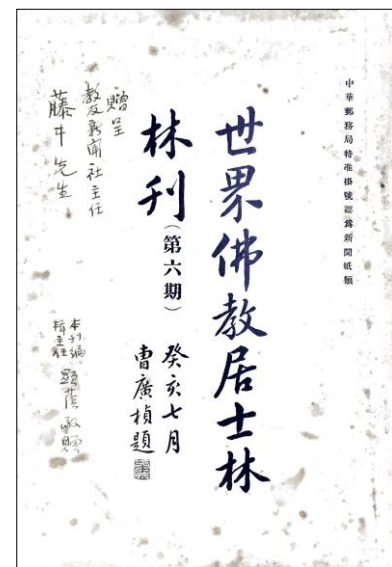 中華郵務局特准掛號認爲新聞紙類
世界佛教居士林
林刊（第六期）
癸亥七月
曹廣楨題
贈呈
教友新聞社主任
藤井先生
本刊編
輯主任 顯蔭敬贈